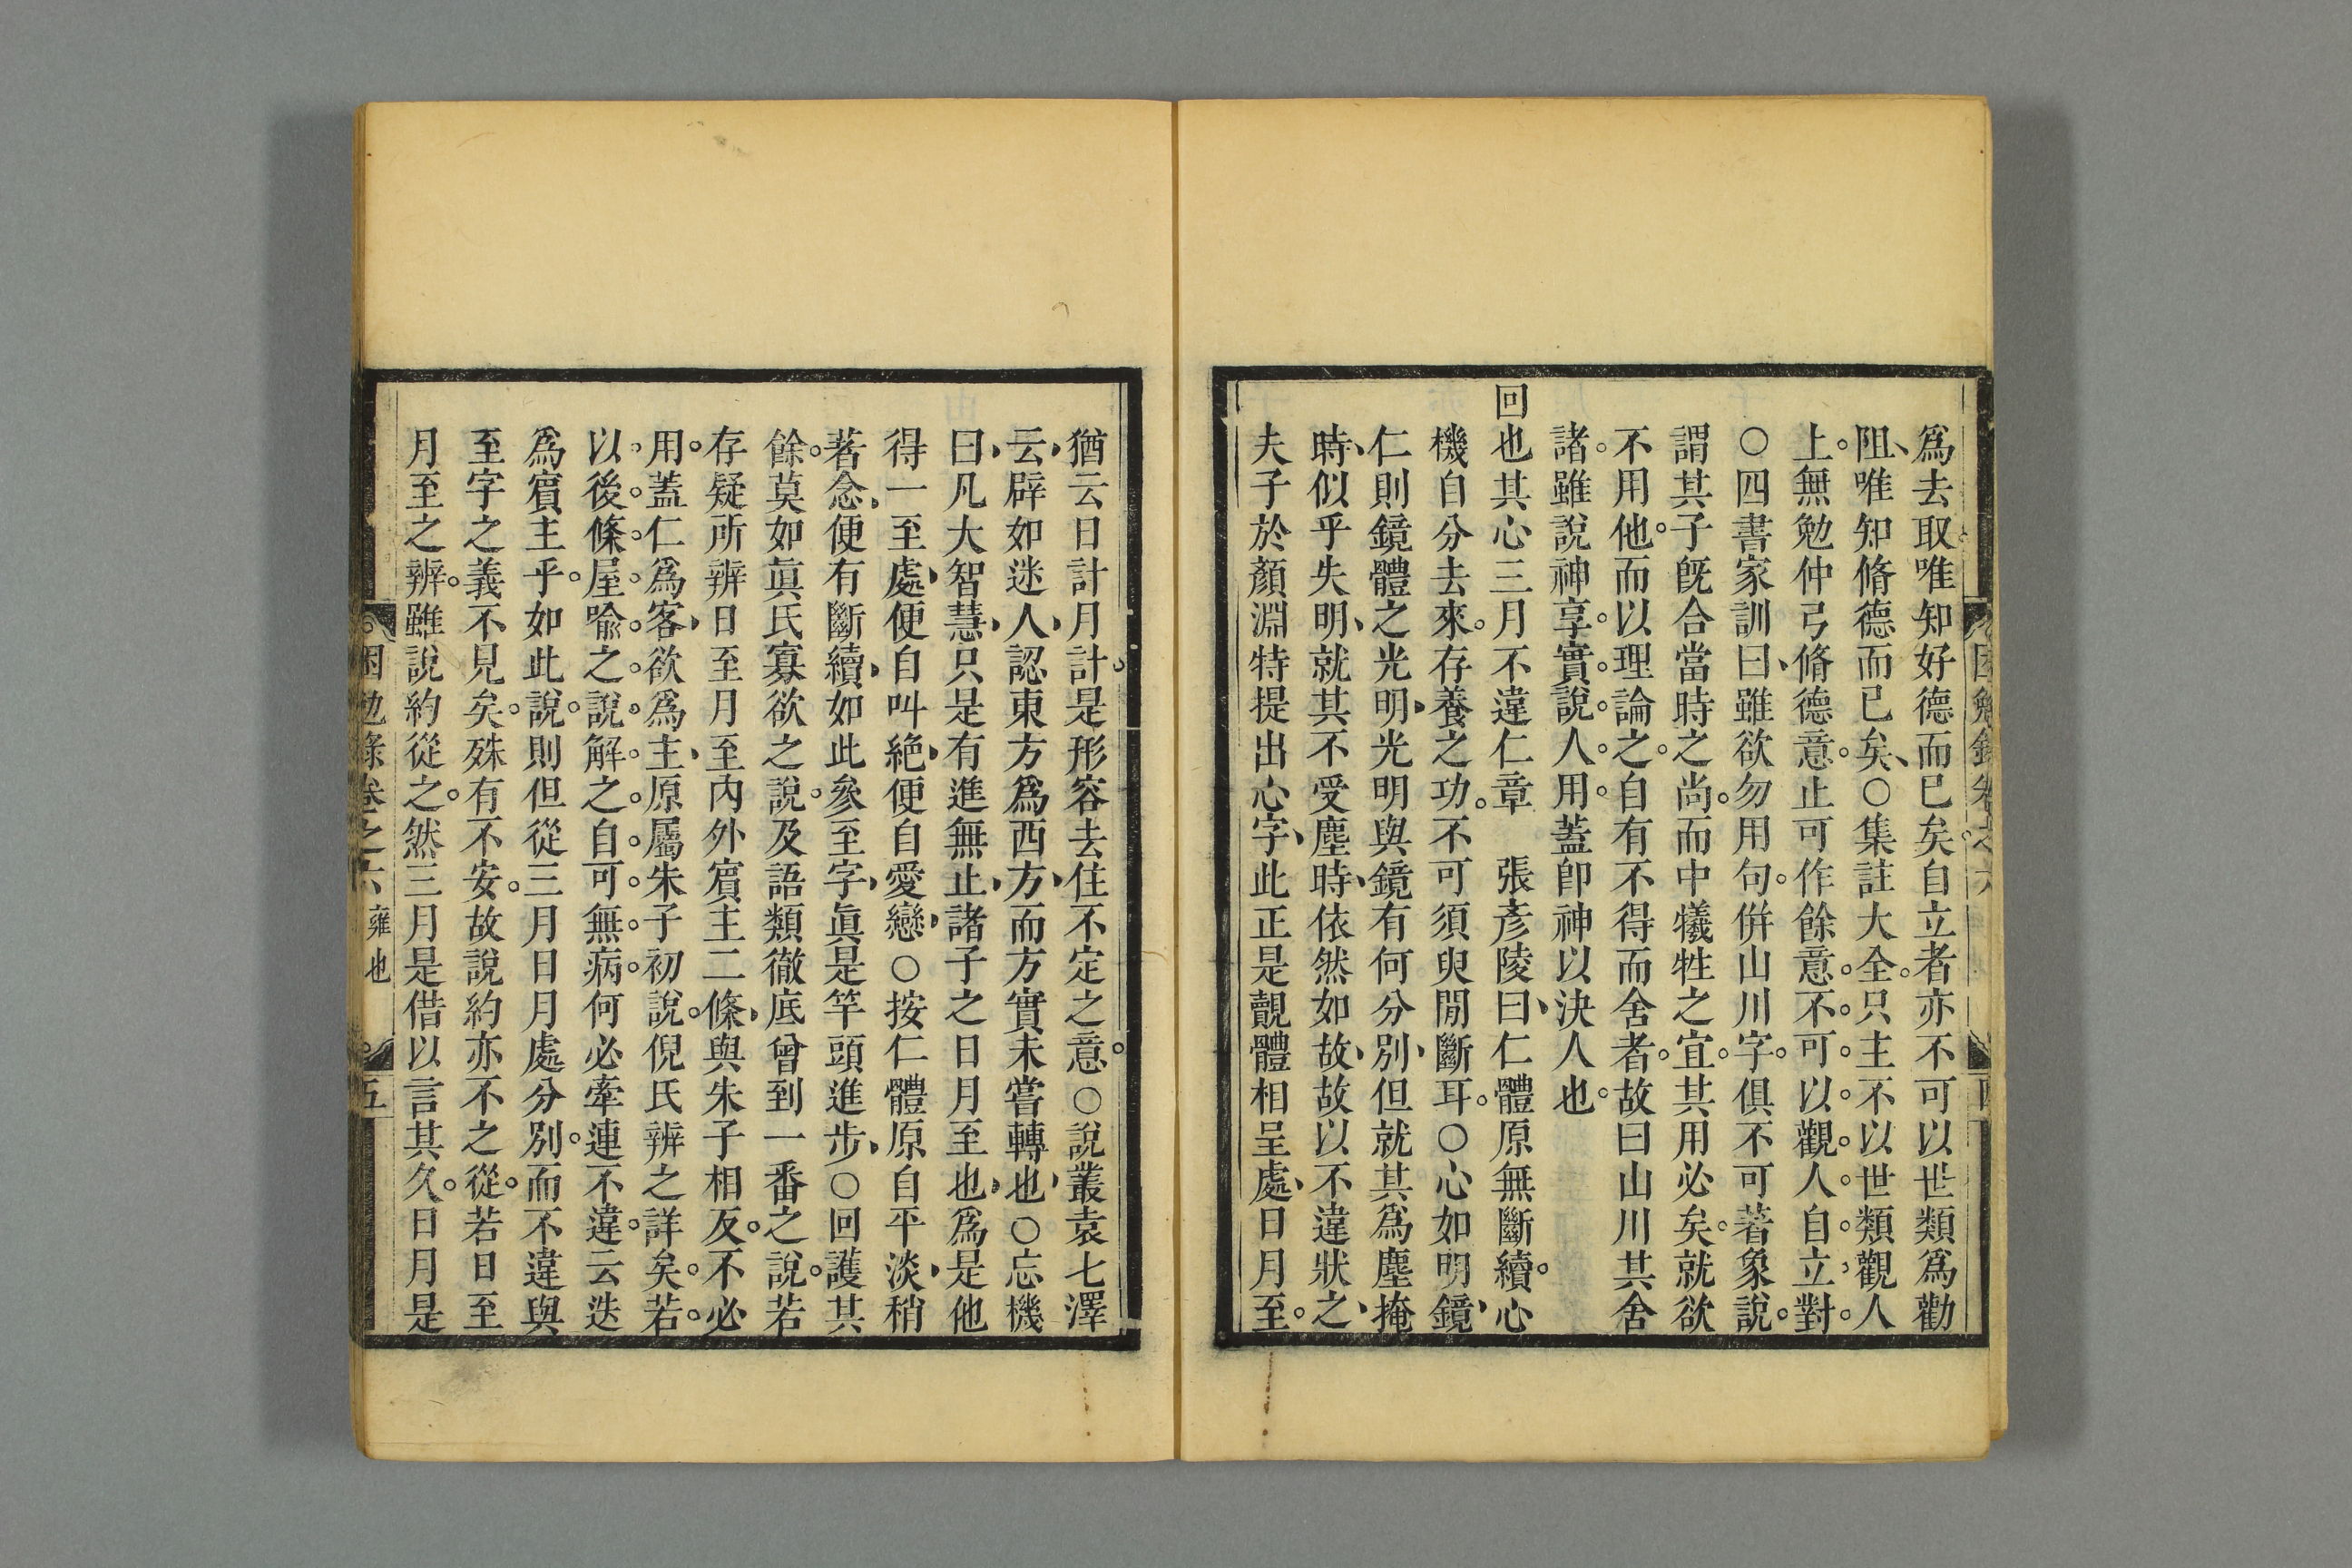 爲去取唯知好德而已矣自立者亦不可以世類爲勸
阻唯知脩德而已矣○集註大全只主不以世類觀人
上無勉仲弓脩德意止可作餘意不可以觀人自立對
○四書家訓曰雖欲勿用句併山川字俱不可著象說
謂其子旣合當時之尚而中犧牲之宜其用必矣就欲
不用他而以理論之自有不得而舍者故曰山川其舍
諸雖說神享實說人用蓋卽神以決人也
回也其心三月不違仁章 張彥陵曰仁體原無斷續心
機自分去來存養之功不可須臾閒斷耳○心如明鏡
仁則鏡體之光明光明與鏡有何分別但就其爲塵掩
時似乎失明就其不受塵時依然如故故以不違狀之
夫子於顏淵特提出心字此正是覿體相呈處日月至
猶云日計月計是形容去住不定之意○說叢袁七澤
云辟如迷人認東方爲西方而方實未嘗轉也○忘機
曰凡大智慧只是有進無止諸子之日月至也爲是他
得一至處便自叫絶便自愛戀○按仁體原自平淡稍
著念便有斷續如此叅至字眞是竿頭進步○回護其
餘莫如眞氏寡欲之說及語類徹底曾到一番之說若
存疑所辨日至月至內外賓主二條與朱子相反不必
用蓋仁爲客欲爲主原屬朱子初說倪氏辨之詳矣若
以後條屋喩之說解之自可無病何必牽連不違云迭
爲賓主乎如此說則但從三月日月處分別而不違與
至字之義不見矣殊有不安故說約亦不之從若日至
月至之辨雖說約從之然三月是借以言其久日月是
困勉錄卷之六 雍也 五